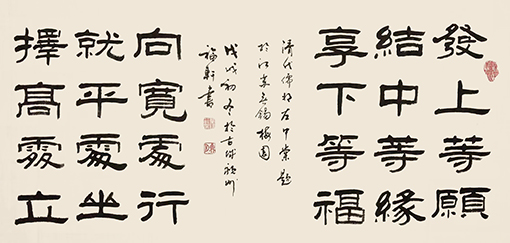 發上等願
結中等緣
享下等福
清代儒将左中棠題
於江蘇无錫梅園
戊戌初冬於古城州
軒書
向寬處行
就平處坐
擇髙處立